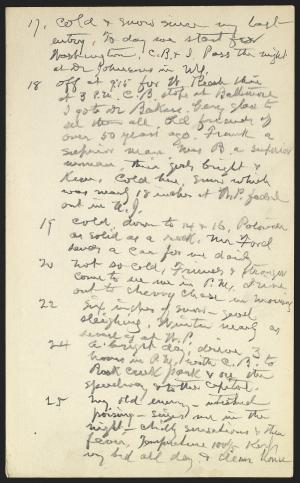 17. Cold & snow since my last
entry, To day we start for
Washington, C.B. & I. Pass the night
at Dr Johnsons in N.Y.
18 off at 8:15 for W. Reach there
at 3 P.M. C.B. stops at Baltimore
I go to Dr Bakers. Very glad to
see them all. Old friends of
over 50 years ago. Frank a
superior man. Mrs B. a superior
woman, their girls bright &
keen. Cold here, snow which
was nearly 18 inches at W.P. faded
out in N.J.
19 Cold, down to 14 & 16, Potomac
as solid as a rock. Mr Ford
sends a car for me daily
20 Not so cold, Friends & strangers
come to see me in P.M., drive
out to Chevy Chase in morning
22 Six inches of snow - good
sleighing. Winter nearly as
severe as at W.P.
24 A bright day, drive 3
hours in P.M. with C.B. to
Rock Creek park & over the
speedway & to the Capitol.
25 My old enemy - intestinal
poisoning - seizes me in the
night - chilly sensations & then
fever, Temperature 100½ Keep
my bed all day & clean house